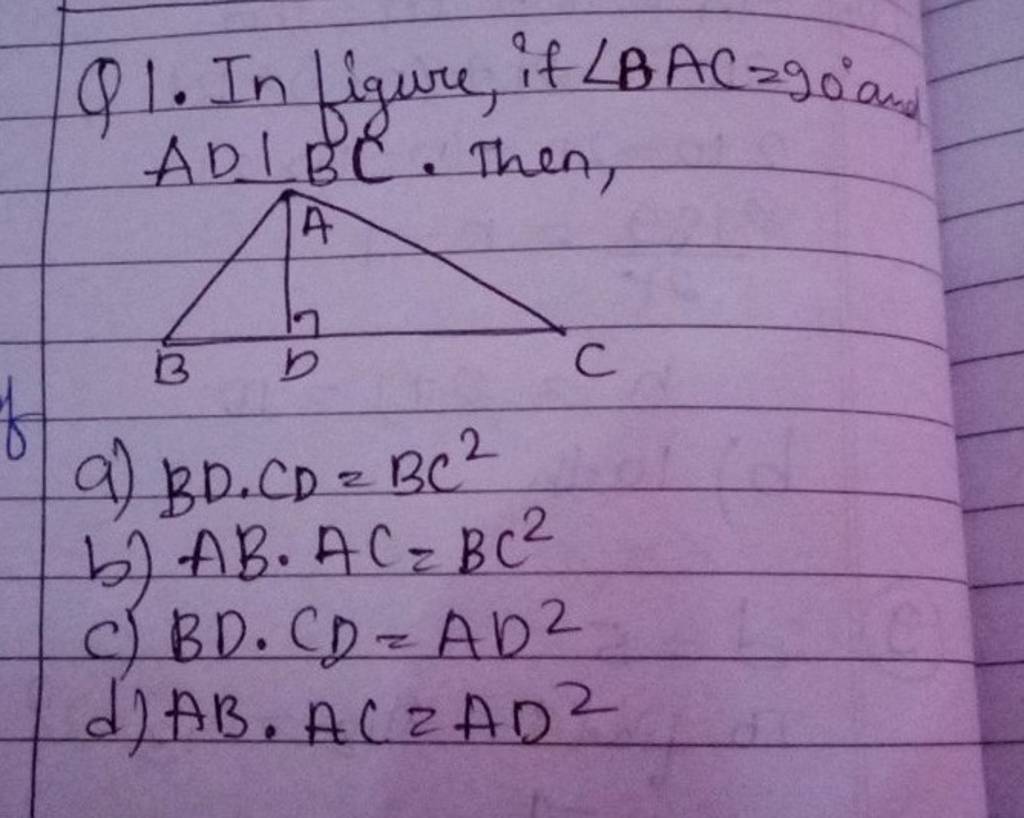 Q1. In figure, if ∠BAC=90° and
AD⊥BC. Then,
A
B D C
a) BD.CD = BC²
b) AB. AC = BC²
c) BD. CD = AD²
d) AB. AC = AD²